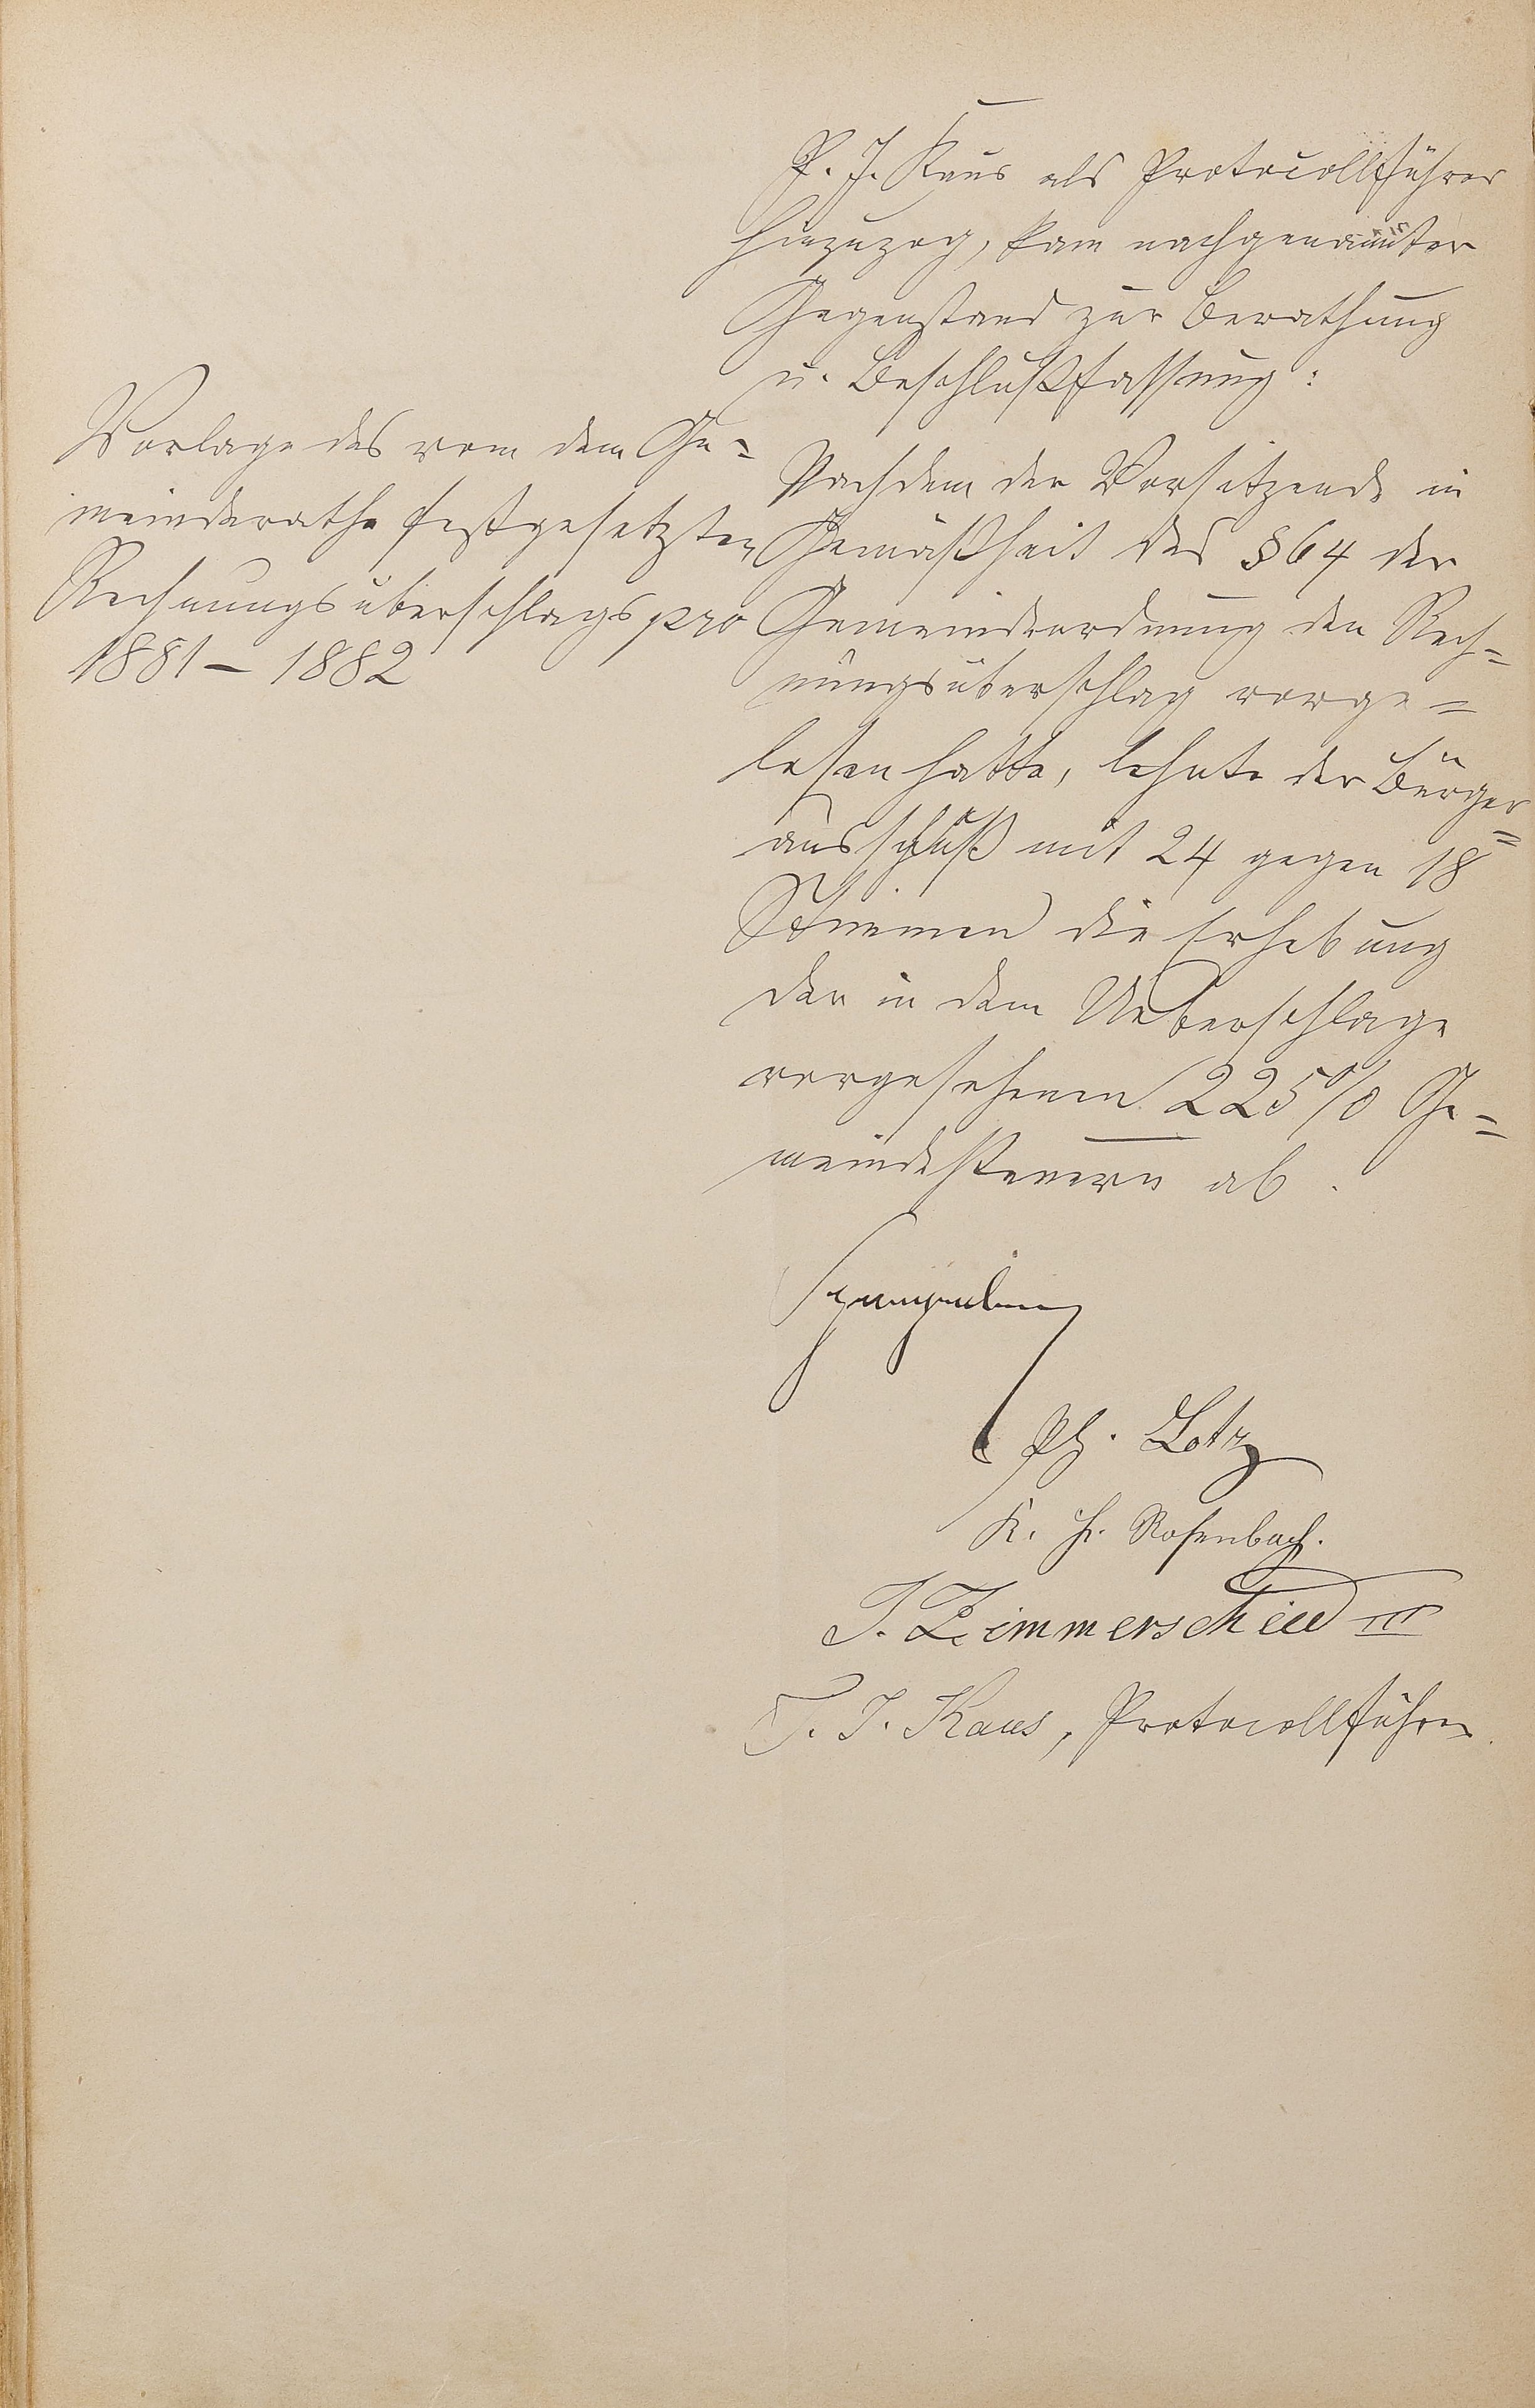 P. J. Kaus als Protocollführer
hinzuzog, kam nachgenannter
Gegenstand zur Berathung
u. Beschlußfassung:
Vorlage des vom dem Ge-
meinderathe festgesetzten
Rechnungsüberschlags pro
1881 – 1882
Nachdem der Vorsitzende in
Gemäßheit des § 64 der
Gemeindeordnung den Rech-
nungsüberschlag vorge-
lesen hatte, lehnte der Bürger-
ausschuß mit 24 gegen 18
Stimmen die Erhebung
der in dem Ueberschlage
vorgesehenen 225 % Ge-
meindesteuern ab.
Ph. Lotz
K. H. Rosenbach.
J. Zimmerschied III
P. J. Kaus, Protocollführer.